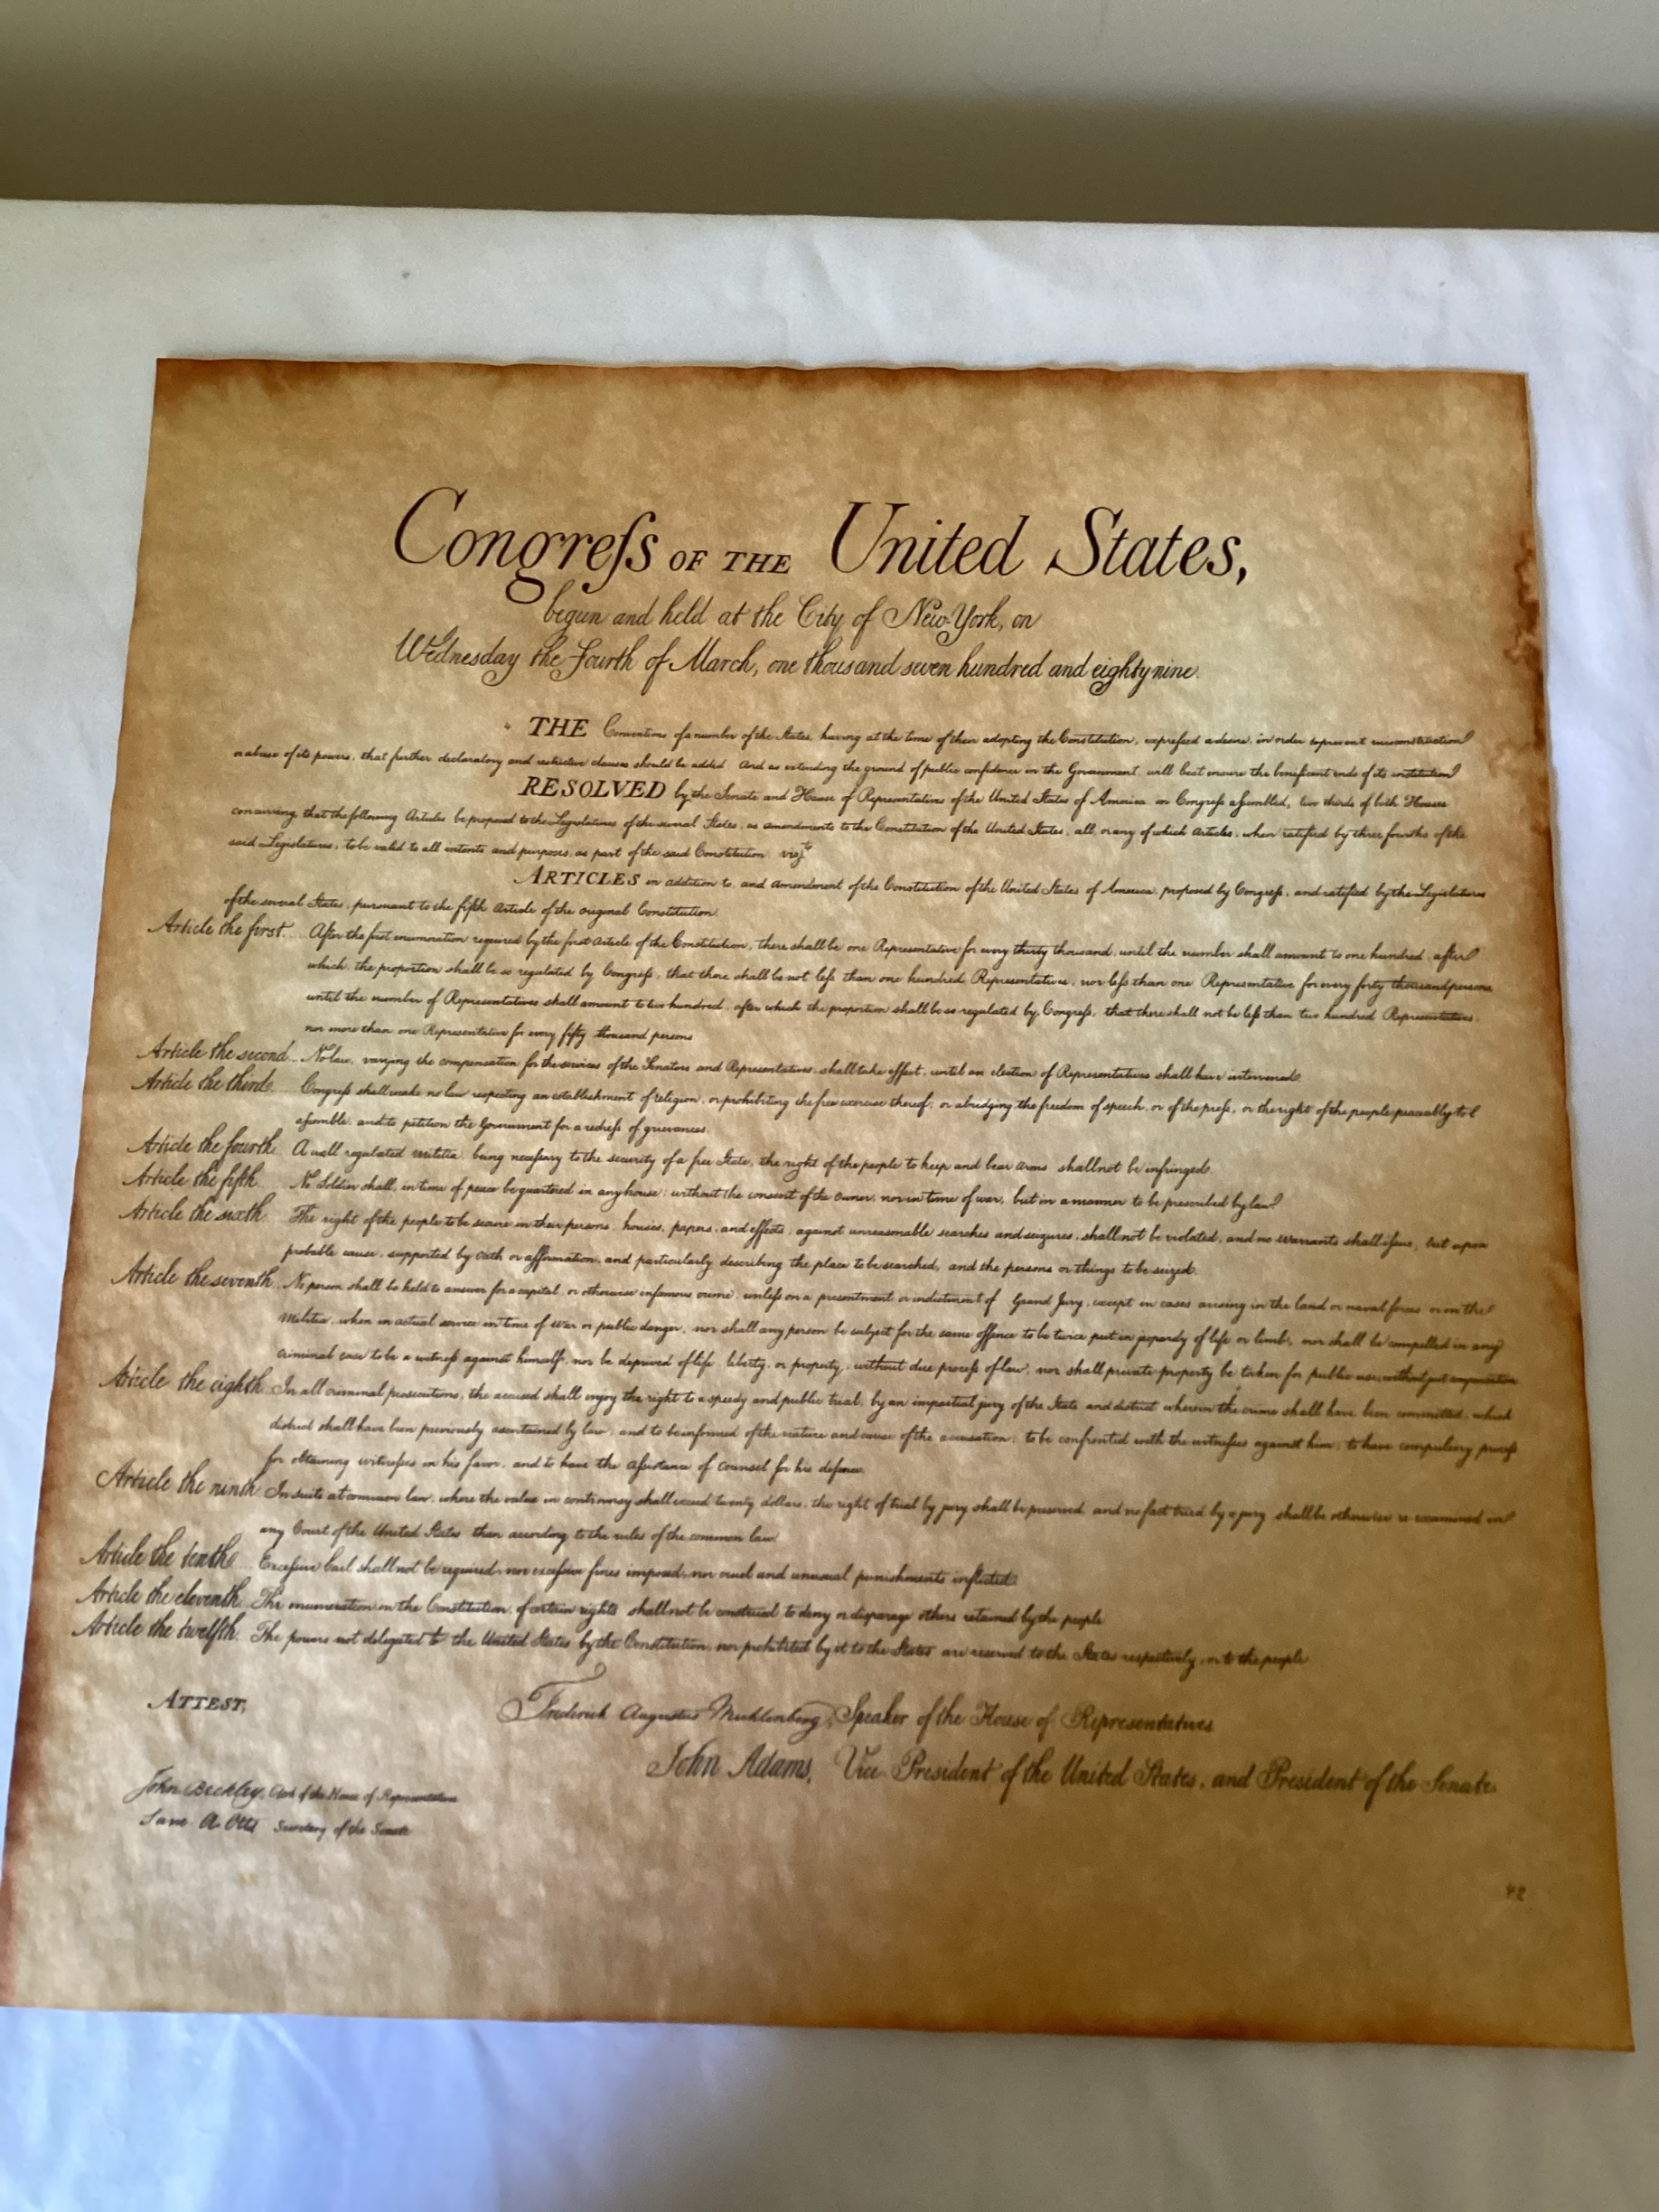 Congreſs OF THE United States,
begun and held at the City of New-York, on
Wednesday the Fourth of March, one thousand seven hundred and eighty nine.
THE Conventions of a number of the States, having at the time of their adopting the Constitution, expreſsed a desire, in order to prevent misconstruction
or abuse of its powers, that further declaratory and restrictive clauses should be added And as extending the ground of public confidence in the Government, will best ensure the beneficent ends of its institution
RESOLVED by the Senate and House of Representatives of the United States of America in Congreſs aſsembled, two thirds of both Houses
concurring, that the following Articles be proposed to the Legislatures of the several States, as amendments to the Constitution of the United States, all, or any of which Articles, when ratified by three fourths of the
said Legislatures, to be valid to all intents and purposes, as part of the said Constitution; vizt
ARTICLES in addition to, and amendment of the Constitution of the United States of America, proposed by Congreſs, and ratified by the Legislatures
of the several States, pursuant to the fifth Article of the original Constitution.
Article the first... After the first enumeration required by the first Article of the Constitution, there shall be one Representative for every thirty thousand, until the number shall amount to one hundred, after
which, the proportion shall be so regulated by Congreſs, that there shall be not leſs than one hundred Representatives, nor leſs than one Representative for every forty thousand persons,
until the number of Representatives shall amount to two hundred, after which the proportion shall be so regulated by Congreſs, that there shall not be leſs than two hundred Representatives,
nor more than one Representative for every fifty thousand persons
Article the second... No law, varying the compensation for the services of the Senators and Representatives, shall take effect, until an election of Representatives shall have intervened.
Article the third... Congreſs shall make no law respecting an establishment of religion, or prohibiting the free exercise thereof; or abridging the freedom of speech, or of the preſs, or the right of the people peaceably to
aſsemble, and to petition the Government for a redreſs of grievances.
Article the fourth. A well regulated militia, being neceſsary to the security of a free State, the right of the people to keep and bear arms shall not be infringed.
Article the fifth... No Soldier shall, in time of peace be quartered in any house, without the consent of the owner, nor in time of war, but in a manner to be prescribed by law.
Article the sixth... The right of the people to be secure in their persons, houses, papers, and effects, against unreasonable searches and seizures, shall not be violated, and no warrants shall iſsue, but upon
probable cause, supported by oath or affirmation, and particularly describing the place to be searched, and the persons or things to be seized.
Article the seventh... No person shall be held to answer for a capital, or otherwise infamous crime, unleſs on a presentment or indictment of Grand Jury, except in cases arising in the land or naval forces or in the
Militia, when in actual service in time of war or public danger, nor shall any person be subject for the same offence to be twice put in jeopardy of life or limb, nor shall be compelled in any
criminal case to be a witneſs against himself, nor be deprived of life, liberty, or property, without due proceſs of law; nor shall private property be taken for public use, without just compensation
Article the eighth. In all criminal prosecutions, the accused shall enjoy the right to a speedy and public trial, by an impartial jury of the State and district wherein the crime shall have been committed, which
district shall have been previously ascertained by law, and to be informed of the nature and cause of the accusation; to be confronted with the witneſses against him; to have compulsory proceſs
for obtaining witneſses in his favor, and to have the aſsistance of counsel for his defence.
Article the ninth. In suits at common law, where the value in controversy shall exceed twenty dollars, the right of trial by jury shall be preserved, and no fact tried by a jury, shall be otherwise re-examined in
any Court of the United States than according to the rules of the common law.
Article the tenth... Exceſsive bail shall not be required, nor exceſsive fines imposed, nor cruel and unusual punishments inflicted.
Article the eleventh. The enumeration in the Constitution, of certain rights shall not be construed to deny or disparage others retained by the people
Article the twelfth. The powers not delegated to the United States by the Constitution, nor prohibited by it to the States are reserved to the States respectively, or to the people
ATTEST,
Frederick Augustus Muhlenberg, Speaker of the House of Representatives
John Adams, Vice President of the United States, and President of the Senate.
John Beckley, Clerk of the House of Representatives
Sam. A. Otis Secretary of the Senate